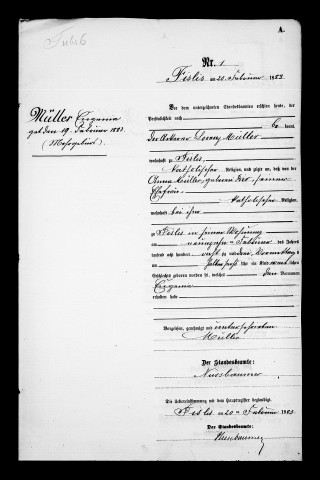 A.
Nr. 1
Fislis am 20. Februar 1883.
Müller Eugenia
geb. den 19. Februar 1883.
Vor dem unterzeichneten Standesbeamten erschien heute, der
Persönlichkeit nach
be kannt,
Der Ackerer Lorenz Müller
wohnhaft zu Fislis
katholischer Religion, und zeigte an, daß von der
Anna Müller, geborene
Ehefrau
katholischer Religion,
wohnhaft bei ihm
zu Fislis in seiner Wohnung
am neunzehnten Februar des Jahres
tausend acht hundert achtzig und drei, Vormittags
um Uhr ein Kind weiblichen
Geschlechts geboren worden sei, welches den Vornamen
Eugenia
erhalten habe
Vorgelesen, genehmigt und unterschrieben
Müller
Der Standesbeamte:
Nussbaumer
Die Uebereinstimmung mit dem Hauptregister beglaubigt.
Fislis am 20ten Februar 1883.
Der Standesbeamte:
Nussbaumer